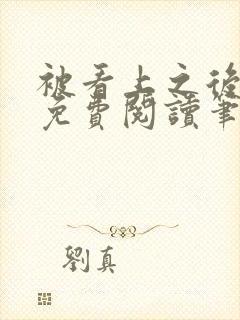 被看上之後
免費閱讀筆
劉真